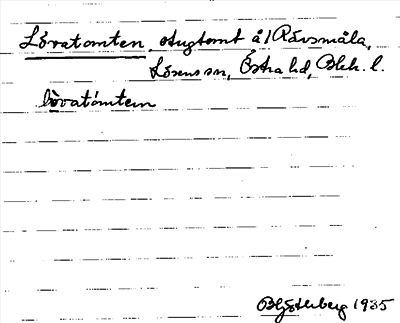 Lövatomten, stugtomt å 1 Råvsmåla,
Lösens sn, Östra hd, Blek. l.
lövatòmten
Bhj Österberg 1935